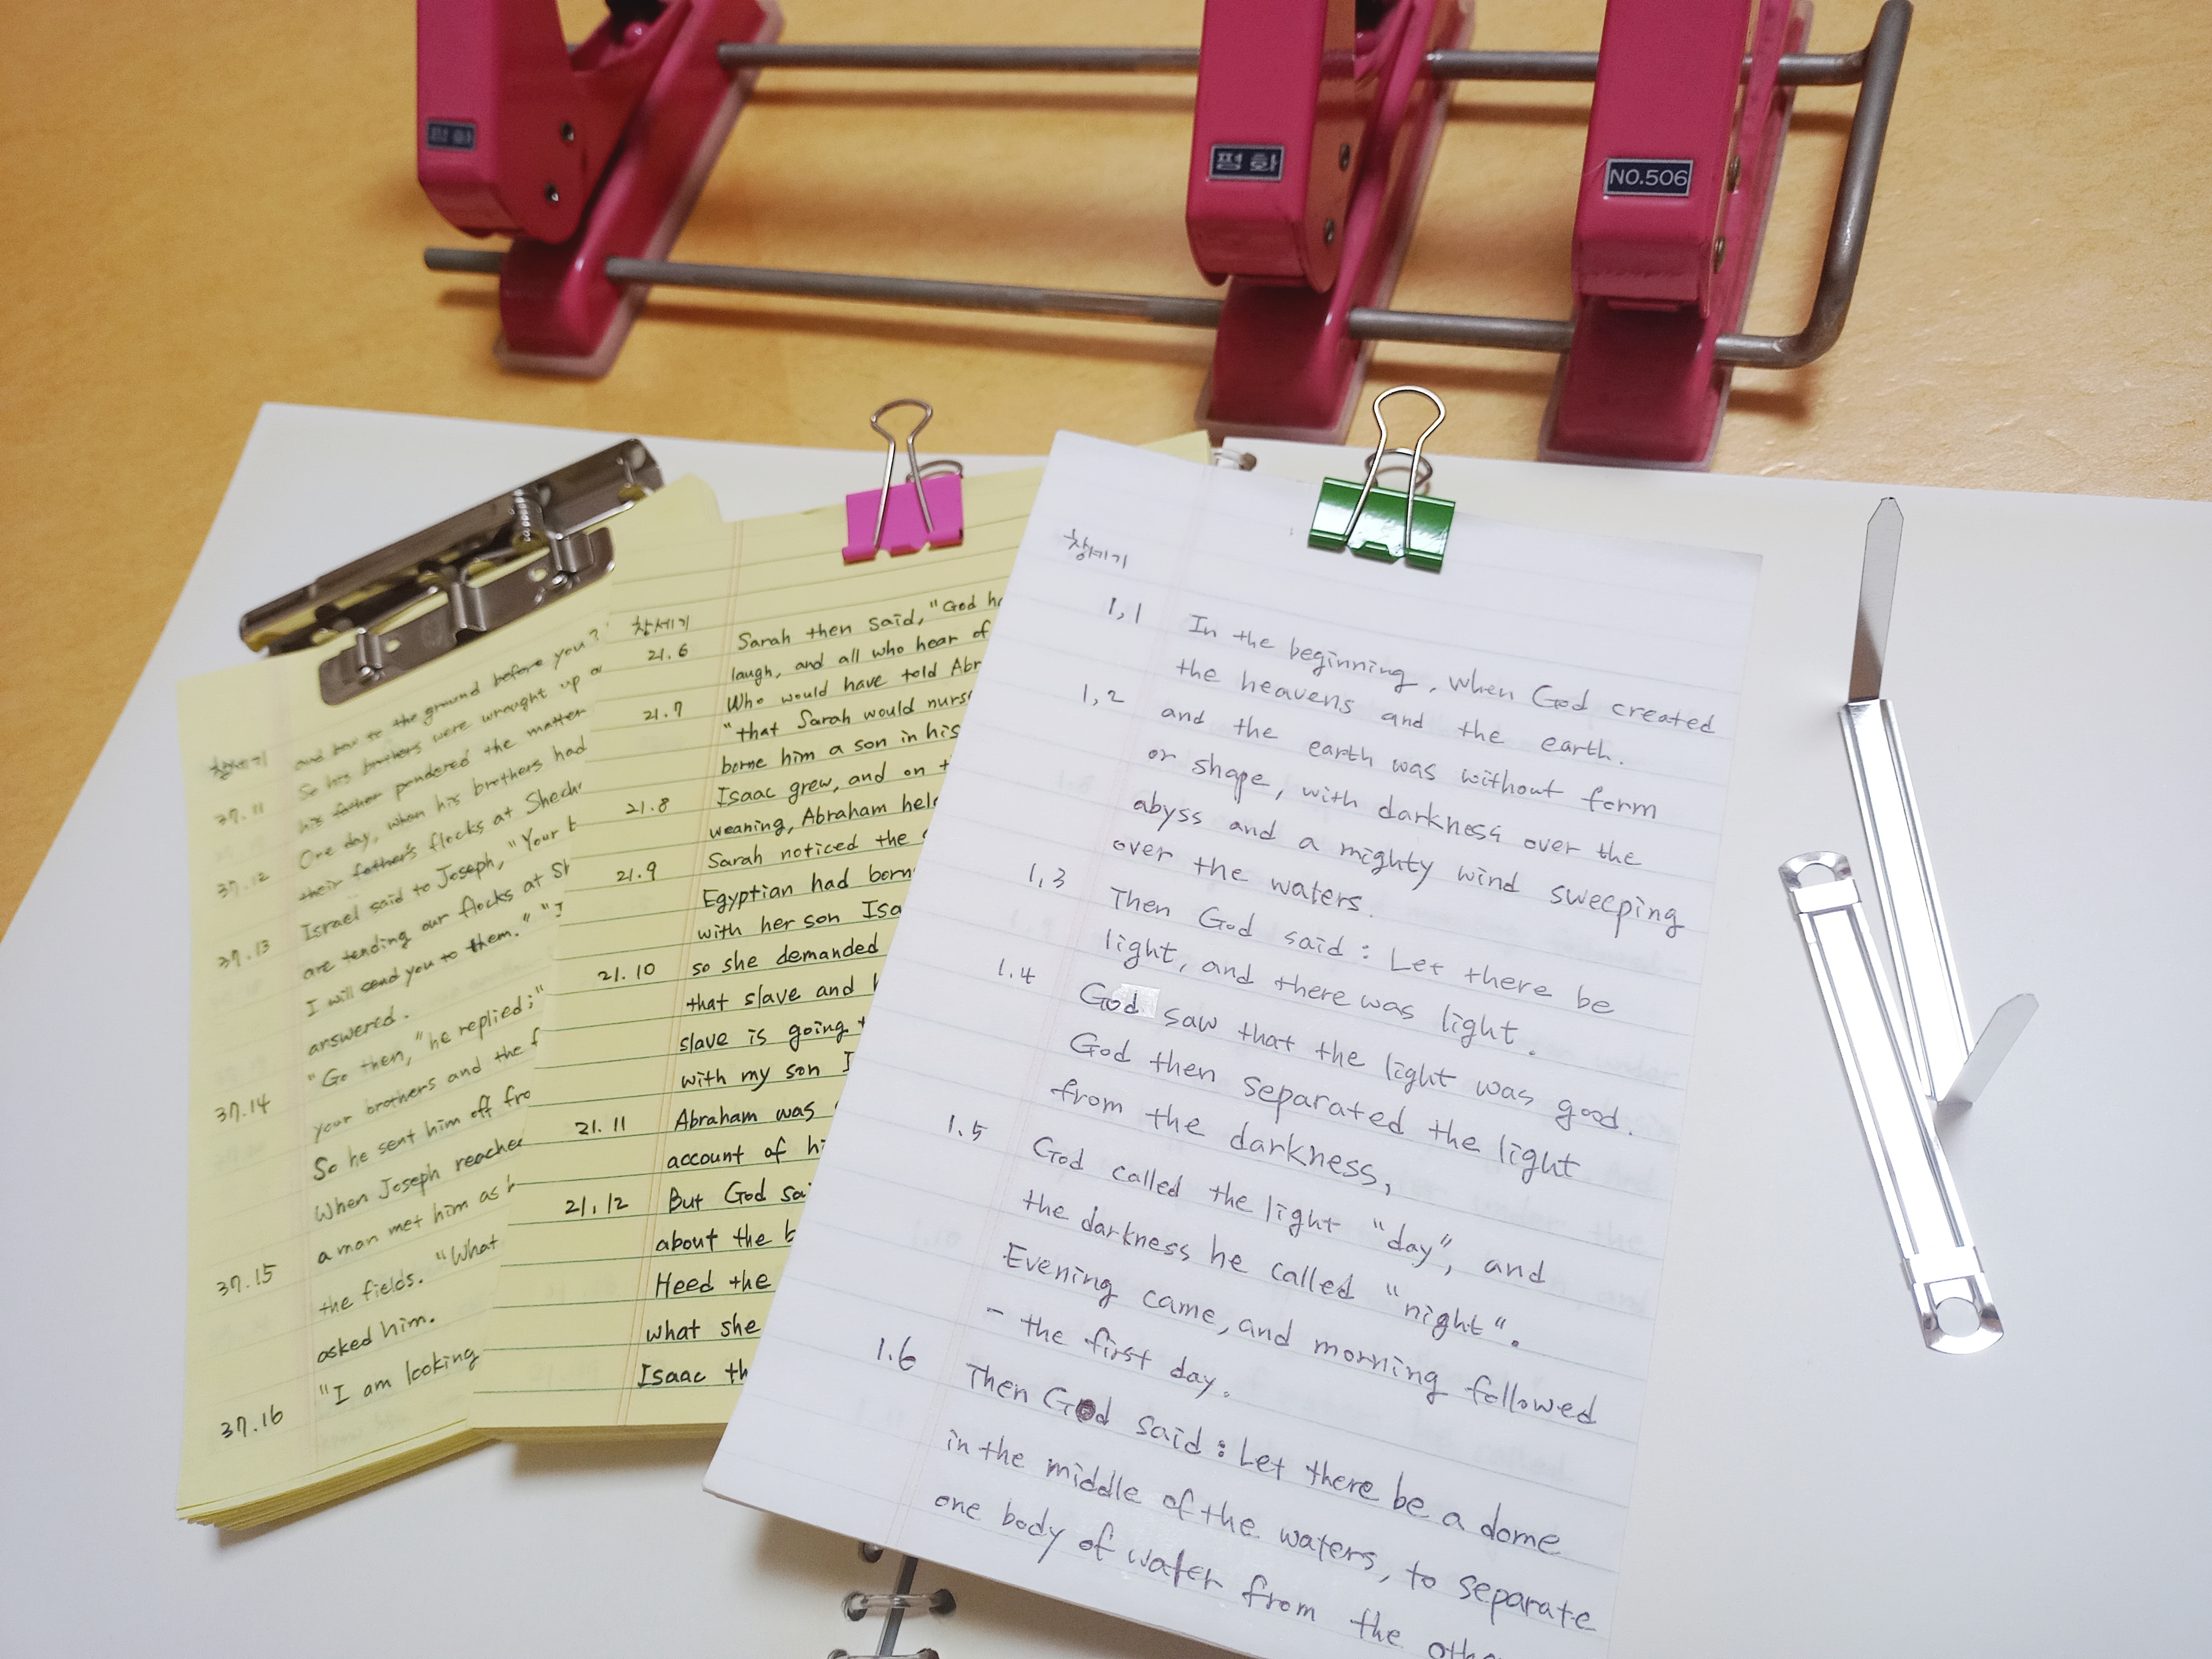 펑 화
NO.506
창세기
and bow to the ground before you?
37.11 So his brothers were wrought up
his father pondered the matter
37.12 One day, when his brothers had
their father's flocks at
37.13 Israel said to Joseph, "Your
are tending our flocks at
I will send you to them."
answered.
37.14 "Go then," he replied;"
your brothers and the
So he sent him off
37.15 When Joseph reached
a man met him as
the fields. "What
asked him.
37.16 "I am looking
창세기
21.6 Sarah then said, "God
laugh, and all who hear of
21.7 Who would have told
"that Sarah would
borne him a son in his
21.8 Isaac grew, and on
weaning, Abraham
21.9 Sarah noticed the
Egyptian had
with her son
21.10 so she demanded
that slave and
slave is going
with my son
21.11 Abraham was
account of
21,12 But God
about the
Heed the
what she
Isaac
창세기
1,1 In the beginning, when God created
the heavens and the earth.
1,2 and the earth was without form
or shape, with darkness over the
abyss and a mighty wind sweeping
over the waters.
1,3 Then God said : Let there be
light, and there was light.
1.4 God saw that the light was good.
God then separated the light
from the darkness,
1.5 God called the light "day", and
the darkness he called "night".
Evening came, and morning followed
- the first day.
1.6 Then God said : Let there be a dome
in the middle of the waters, to separate
one body of water from the